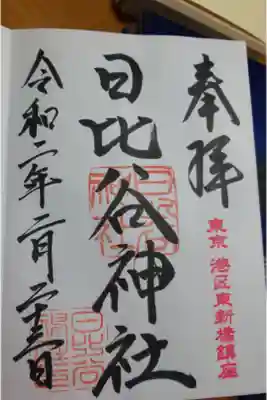 奉拝
東京 港区東新橋鎮座
日比谷神社
令和二年二月二十三日